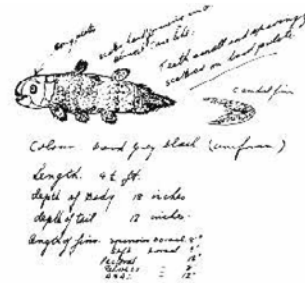 bony plate
scales hard
almost
Teeth small and sparingly
scattered on hard palate.
Caudal fin
Colour hard grey black (uniform)
Length. 4½ ft.
depth of Body 18 inches
depth of tail 12 inches.
length of fins. dorsal 8"
dorsal 9"
Pectoral 12"
Pelvics = 8"
Anal = 12"